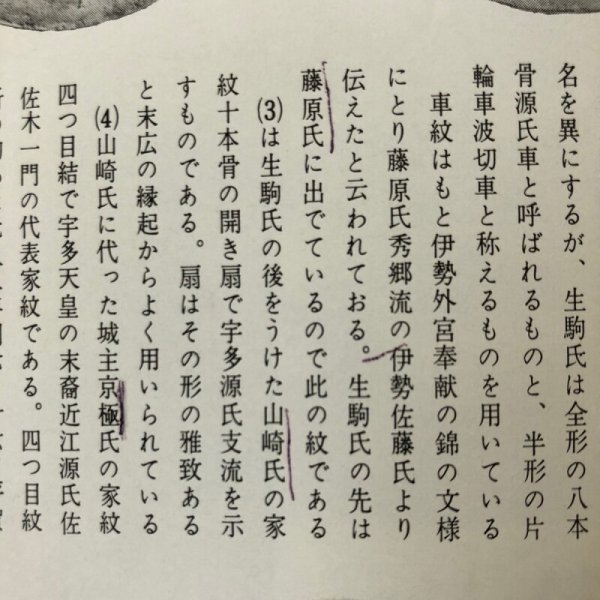 名を異にするが、生駒氏は全形の八本
骨源氏車と呼ばれるものと、半形の片
輪車波切車と称えるものを用いている
車紋はもと伊勢外宮奉献の錦の文様
にとり藤原氏秀郷流の伊勢佐藤氏より
伝えたと云われておる。生駒氏の先は
藤原氏に出でているので此の紋である
⑶は生駒氏の後をうけた山崎氏の家
紋十本骨の開き扇で宇多源氏支流を示
すものである。扇はその形の雅致ある
と末広の縁起からよく用いられている
⑷山崎氏に代った城主京極氏の家紋
四つ目結で宇多天皇の末裔近江源氏佐
佐木一門の代表家紋である。四つ目紋